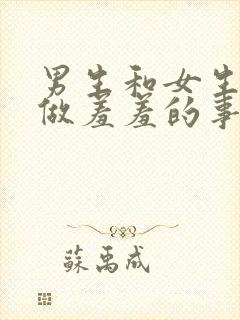 男生和女生
做羞羞的事
蘇禹成